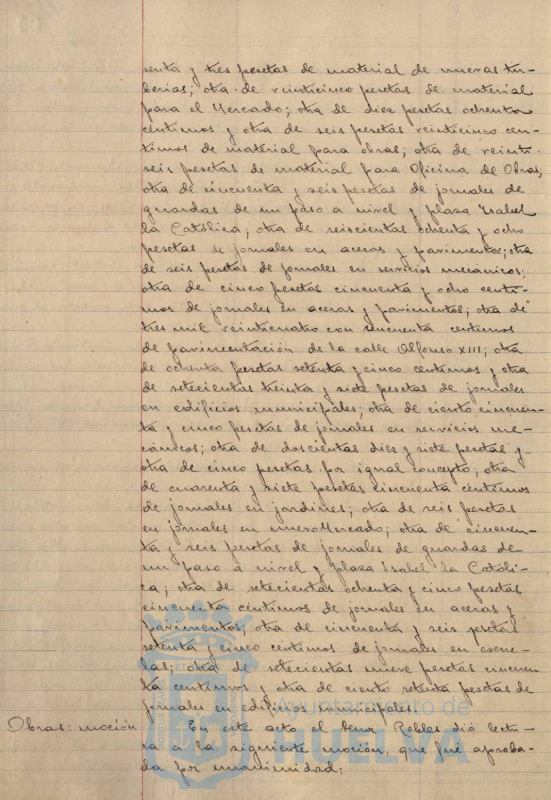 senta y tres pesetas de material de nuevas tu-
berias; otra de veinticinco pesetas de material
para el Mercado; otra de diez pesetas ochenta
centimos y otra de seis pesetas veinticinco cen-
timos de material para obras; otra de veinti-
seis pesetas de material para Oficina de Obras;
otra de cincuenta y seis pesetas de jornales de
guardas de un paso a nivel y plaza Isabel
la Católica; otra de seiscientas ochenta y ocho
pesetas de jornales en aceras y pavimentos; otra
de seis pesetas de jornales en servicios mecanicos;
otra de cinco pesetas cincuenta y ocho centi-
mos de jornales en aceras y pavimentos; otra de
tres mil veinticuatro con cincuenta centimos
de pavimentación de la calle Alfonso XIII; otra
de ochenta pesetas setenta y cinco centimos y otra
de setecientas treinta y siete pesetas de jornales
en edificios municipales; otra de ciento cincuen-
ta y cinco pesetas de jornales en servicios me-
cánicos; otra de doscientas diez y siete pesetas y
otra de cinco pesetas por igual concepto; otra
de cuarenta y siete pesetas cincuenta centimos
de jornales en jardines; otra de seis pesetas
en jornales en nuevo Mercado; otra de cincuen-
ta y seis pesetas de jornales de guardas de
un paso a nivel y plaza Isabel la Católi-
ca; otra de setecientas ochenta y cinco pesetas
cincuenta centimos de jornales en aceras y
pavimentos; otra de cincuenta y seis pesetas
setenta y cinco centimos de jornales en escue-
las; otra de setecientas nueve pesetas cincuen-
ta centimos y otra de ciento setenta pesetas de
jornales en edificios municipales.
Obras: moción En este acto el Senor Robles dió lectu-
ra a la siguiente moción, que fué aproba-
da por unanimidad:
Ayuntamiento de
HUELVA